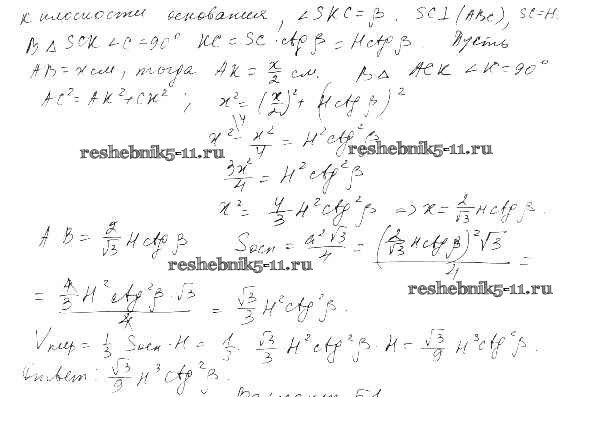 к плоскости основания, ∠SKC = β. SC⊥(ABC), SC=H.
В △ SCK ∠C = 90° KC = SC · ctg β = H ctg β. Пусть
AB = x см, тогда AK = x/2 см. В △ ACK ∠K = 90°
AC² = AK² + CK²; x² = (x/2)² + (H ctg β)²
x² - x²/4 = H² ctg² β
reshebnik5-11.ru reshebnik5-11.ru
3x²/4 = H² ctg² β
x² = 4/3 H² ctg² β => x = 2/√3 H ctg β.
AB = 2/√3 H ctg β Sосн = a²√3/4 = (2/√3 H ctg β)²√3/4 =
reshebnik5-11.ru
reshebnik5-11.ru
= 4/3 H² ctg² β · √3/4 = √3/3 H² ctg² β.
Vпир = 1/3 Sосн · H = 1/3 · √3/3 H² ctg² β · H = √3/9 H³ ctg² β.
Ответ: √3/9 H³ ctg² β.